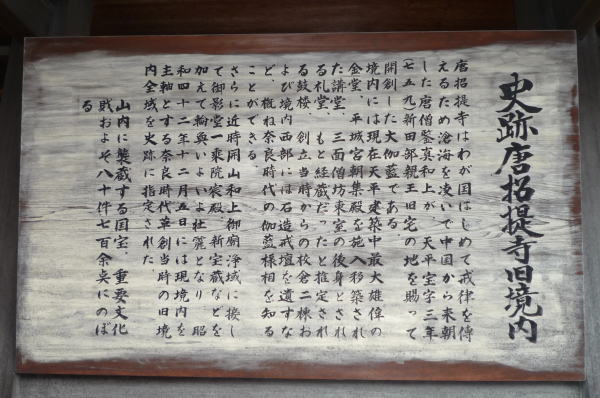 史跡唐招提寺旧境内
唐招提寺はわが国はじめて戒律を傳
えるため滄海を凌いで中国から来朝
した唐僧鑒真和上が、天平宝字三年
(七五九)新田部親王旧宅の地を賜って
開創した大伽藍である
境内には現在天平建築中最大雄偉の
金堂、平城宮朝集殿を施入移築され
た講堂、三面僧坊東室の後身とされ
る礼堂、もと経蔵だったと推定され
る鼓楼、創立当時からの校倉二棟お
よび境内西部には石造戒壇を遺すな
ど、概ね奈良時代の伽藍様相を知る
ことができる
さらに近時開山和上御廟浄域に接し
て御影堂一乗院宸殿、新宝蔵などを
加えて輪奐いよいよ壮麗となり、昭
和四十二年十二月五日には現境内を
主軸とする奈良時代草創当時の旧境
内全域を史跡に指定された、
山内に襲蔵する国宝、重要文化
財およそ八十件七百余点にのぼ
る